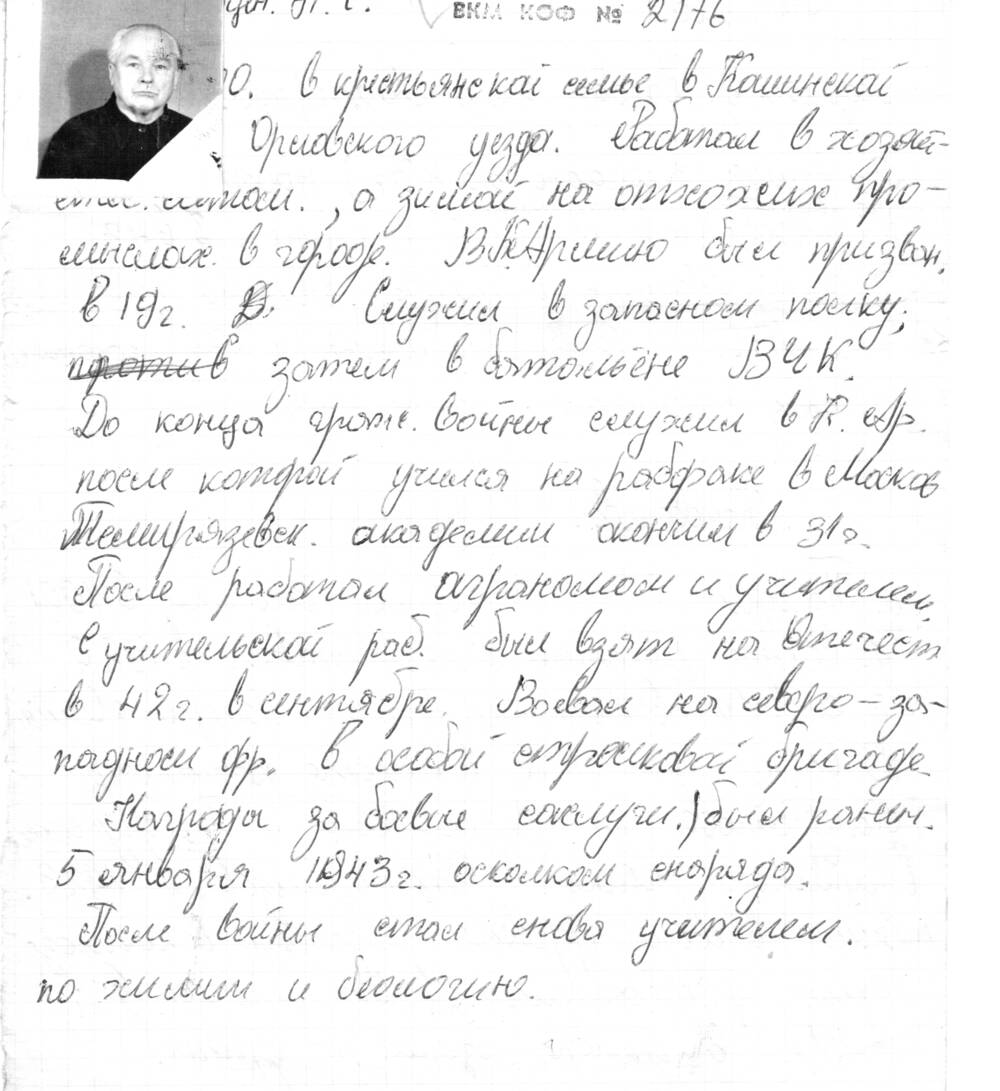 ВКМ КОФ № 2176
0. в крестьянской семье в Кашинской
Орловского уезда. Работал в хозяй-
, а зимой на отхожих про-
мыслах в городе. В К. Армию был призван,
в 19 г. Служил в запасном полку,
против затем в батальёне ВЧК.
До конца граж. войны служил в К. Ар.
после которой учился на рабфаке в Москов
Темирязевск. академии окончил в 31 г.
После работал агрономом и учителем,
С учительской раб. был взят на Отечест
в 42 г. в сентябре. Воевал на северо-за-
падном фр. в особой стрелковой бригаде
Награды за боевые заслуги.) был ранен.
5 января 1943 г. осколком снаряда.
После войны стал снова учителем.
по химии и биологию.